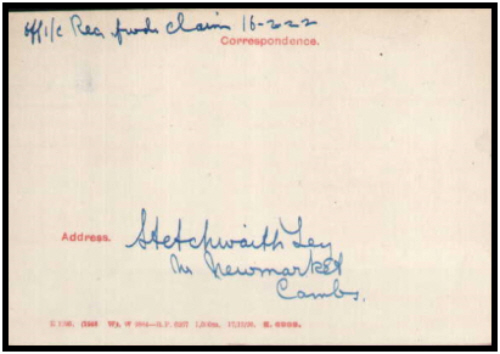 Off i/c Rec fwds Claim 16-2-22
Correspondence.
Address. Stetchwaith Ley
Nr Newmarket
Cambs.